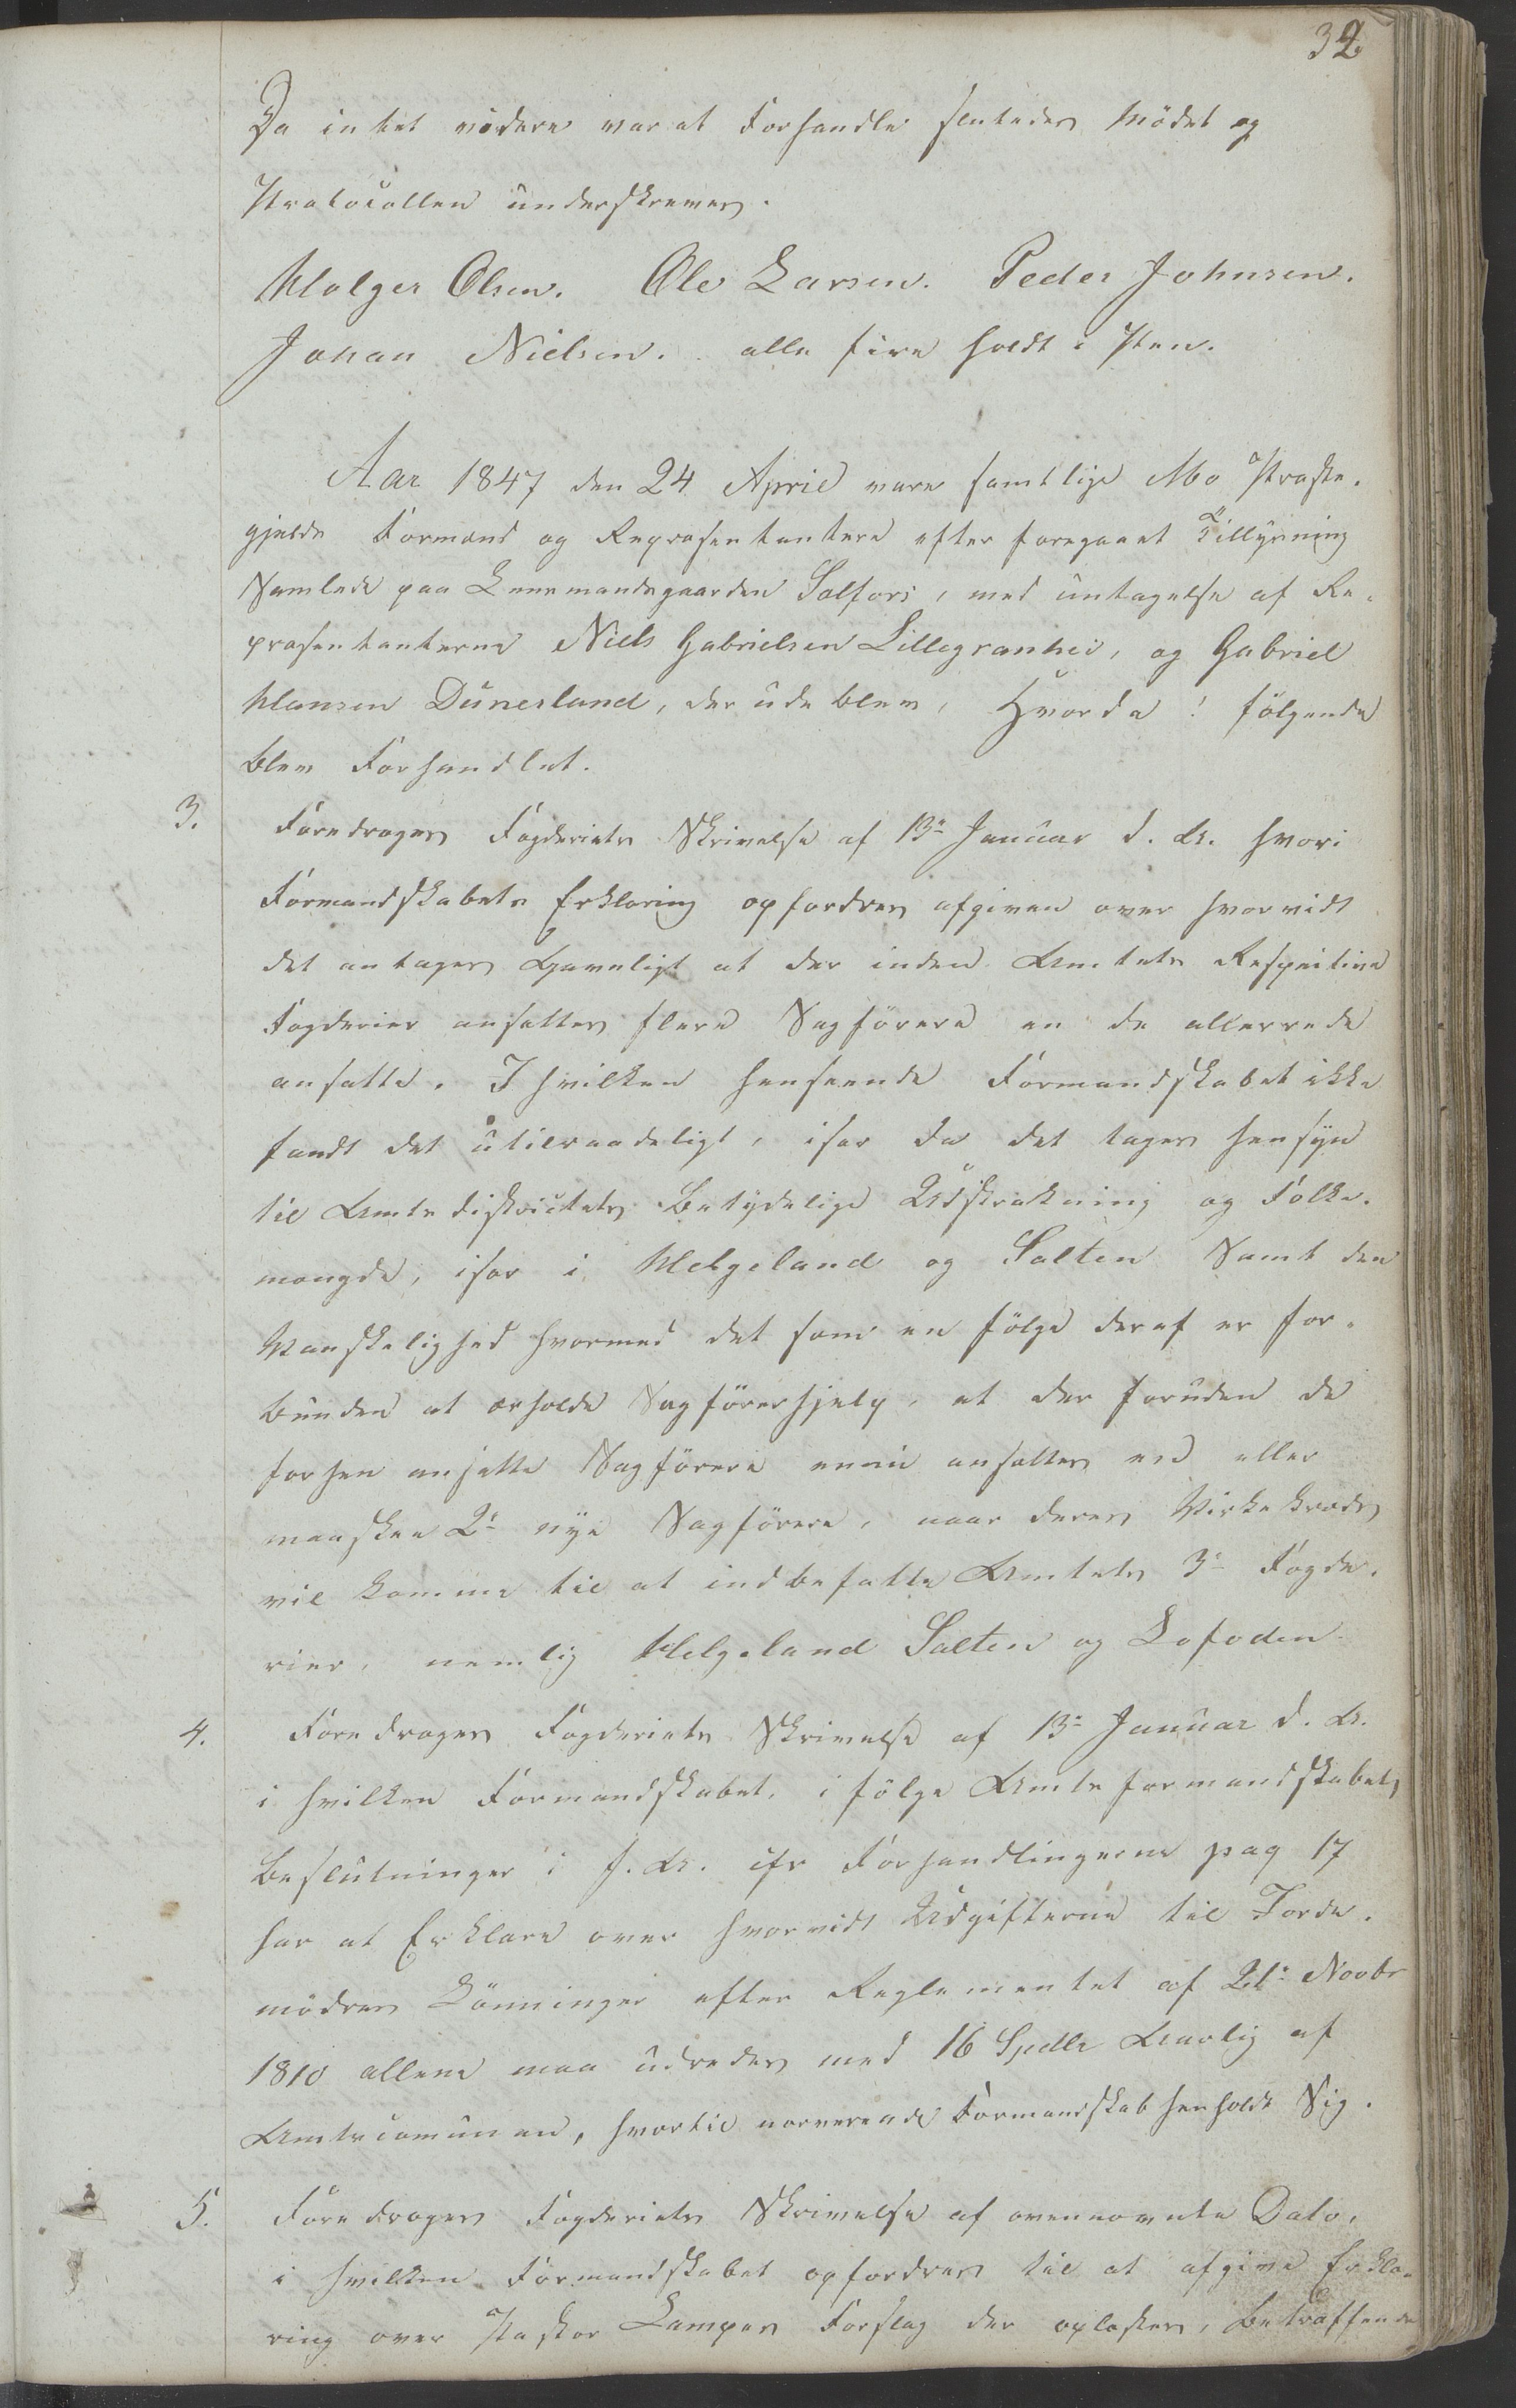 32.
Da intet videre var at Forhandle sluttedes Mödet og
Protocollen underskreves.
Holger Olsen. Ole Larsen. Peder Johnsen.
Johan Nielsen. alle fire holdt i Pen.
Aar 1847 den 24 April vare samtlige Mo Præste-
gjelds Formænd og Repræsentantere efter foregaaet Tillysning
Samlede paa Lensmandsgaarden Selfors, med untagelse af Re-
præsentanterne Niels Gabrielsen Lillegranhei, og Gabriel
Hansen Dunerland, der udeblev, Hvorda! fölgende
blev Forhandlet.
3. Foredroges Fogderiets Skrivelse af 13de Januar d. A. hvori
Formandskabets Erklæring opfordres afgiven over hvorvidt
det antages Gavnligt at der inden Amtets Respective
Fogderier ansættes flere Sagförere en de allerrede
ansatte. I hvilken henseende Formandskabet ikke
fandt det utilraadeligt, især da det tages hensyn
til Amtsdistrictets Betydelige Udstrækning og Folke-
mængde, især i Helgeland og Salten Samt den
Vanskelighed hvormed det som en fölge deraf er for-
bunden at erholde Sagförerhjelp, at der foruden de
forhen ansatte Sagförere ennu ansættes en eller
maaskee 2de nye Sagförere, naar deres Virkekreds
vil komme til at indbefatte Amtets 3de Fogde-
rier, nemlig Helgeland Salten og Lofoden
4. Foredroges Fogderiets Skrivelse af 13de Januar d. A.
i hvilken Formandskabet, i fölge Amtsformandskabets
Beslutninger i f. A. cfr Forhandlingerne pag 17
har at Erklære over hvorvidt Udgifterne til Jorde-
mödres Lönninger efter Reglementet af 21de Novbr
1810 allene maa udredes med 16 Spdlr Aarlig af
Amtscomunen, hvortil nærverende Formandskab henholdt Sig.
5. Foredroges Fogderiets Skrivelse af ovennævnte Dato,
i hvilken Formandskabet opfordres til at afgive Erklæ-
ring over Pastor Lampes Forslag der oplæstes, Betræffende